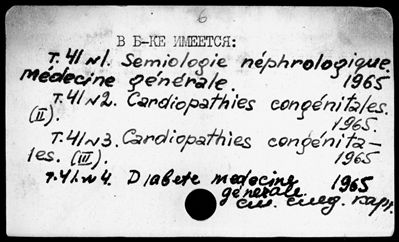 6
В Б-КЕ ИМЕЕТСЯ:
т. 41 N1. Semiologie néphrologique.
médecine générale. 1965
т. 41 N2. Cardiopathies congénitales.
(II). 1965.
т. 41 N3. Cardiopathies congénita-
les. (III). 1965
т. 41. N 4. Diabete medecine 1965
générale.
см. след. карт.